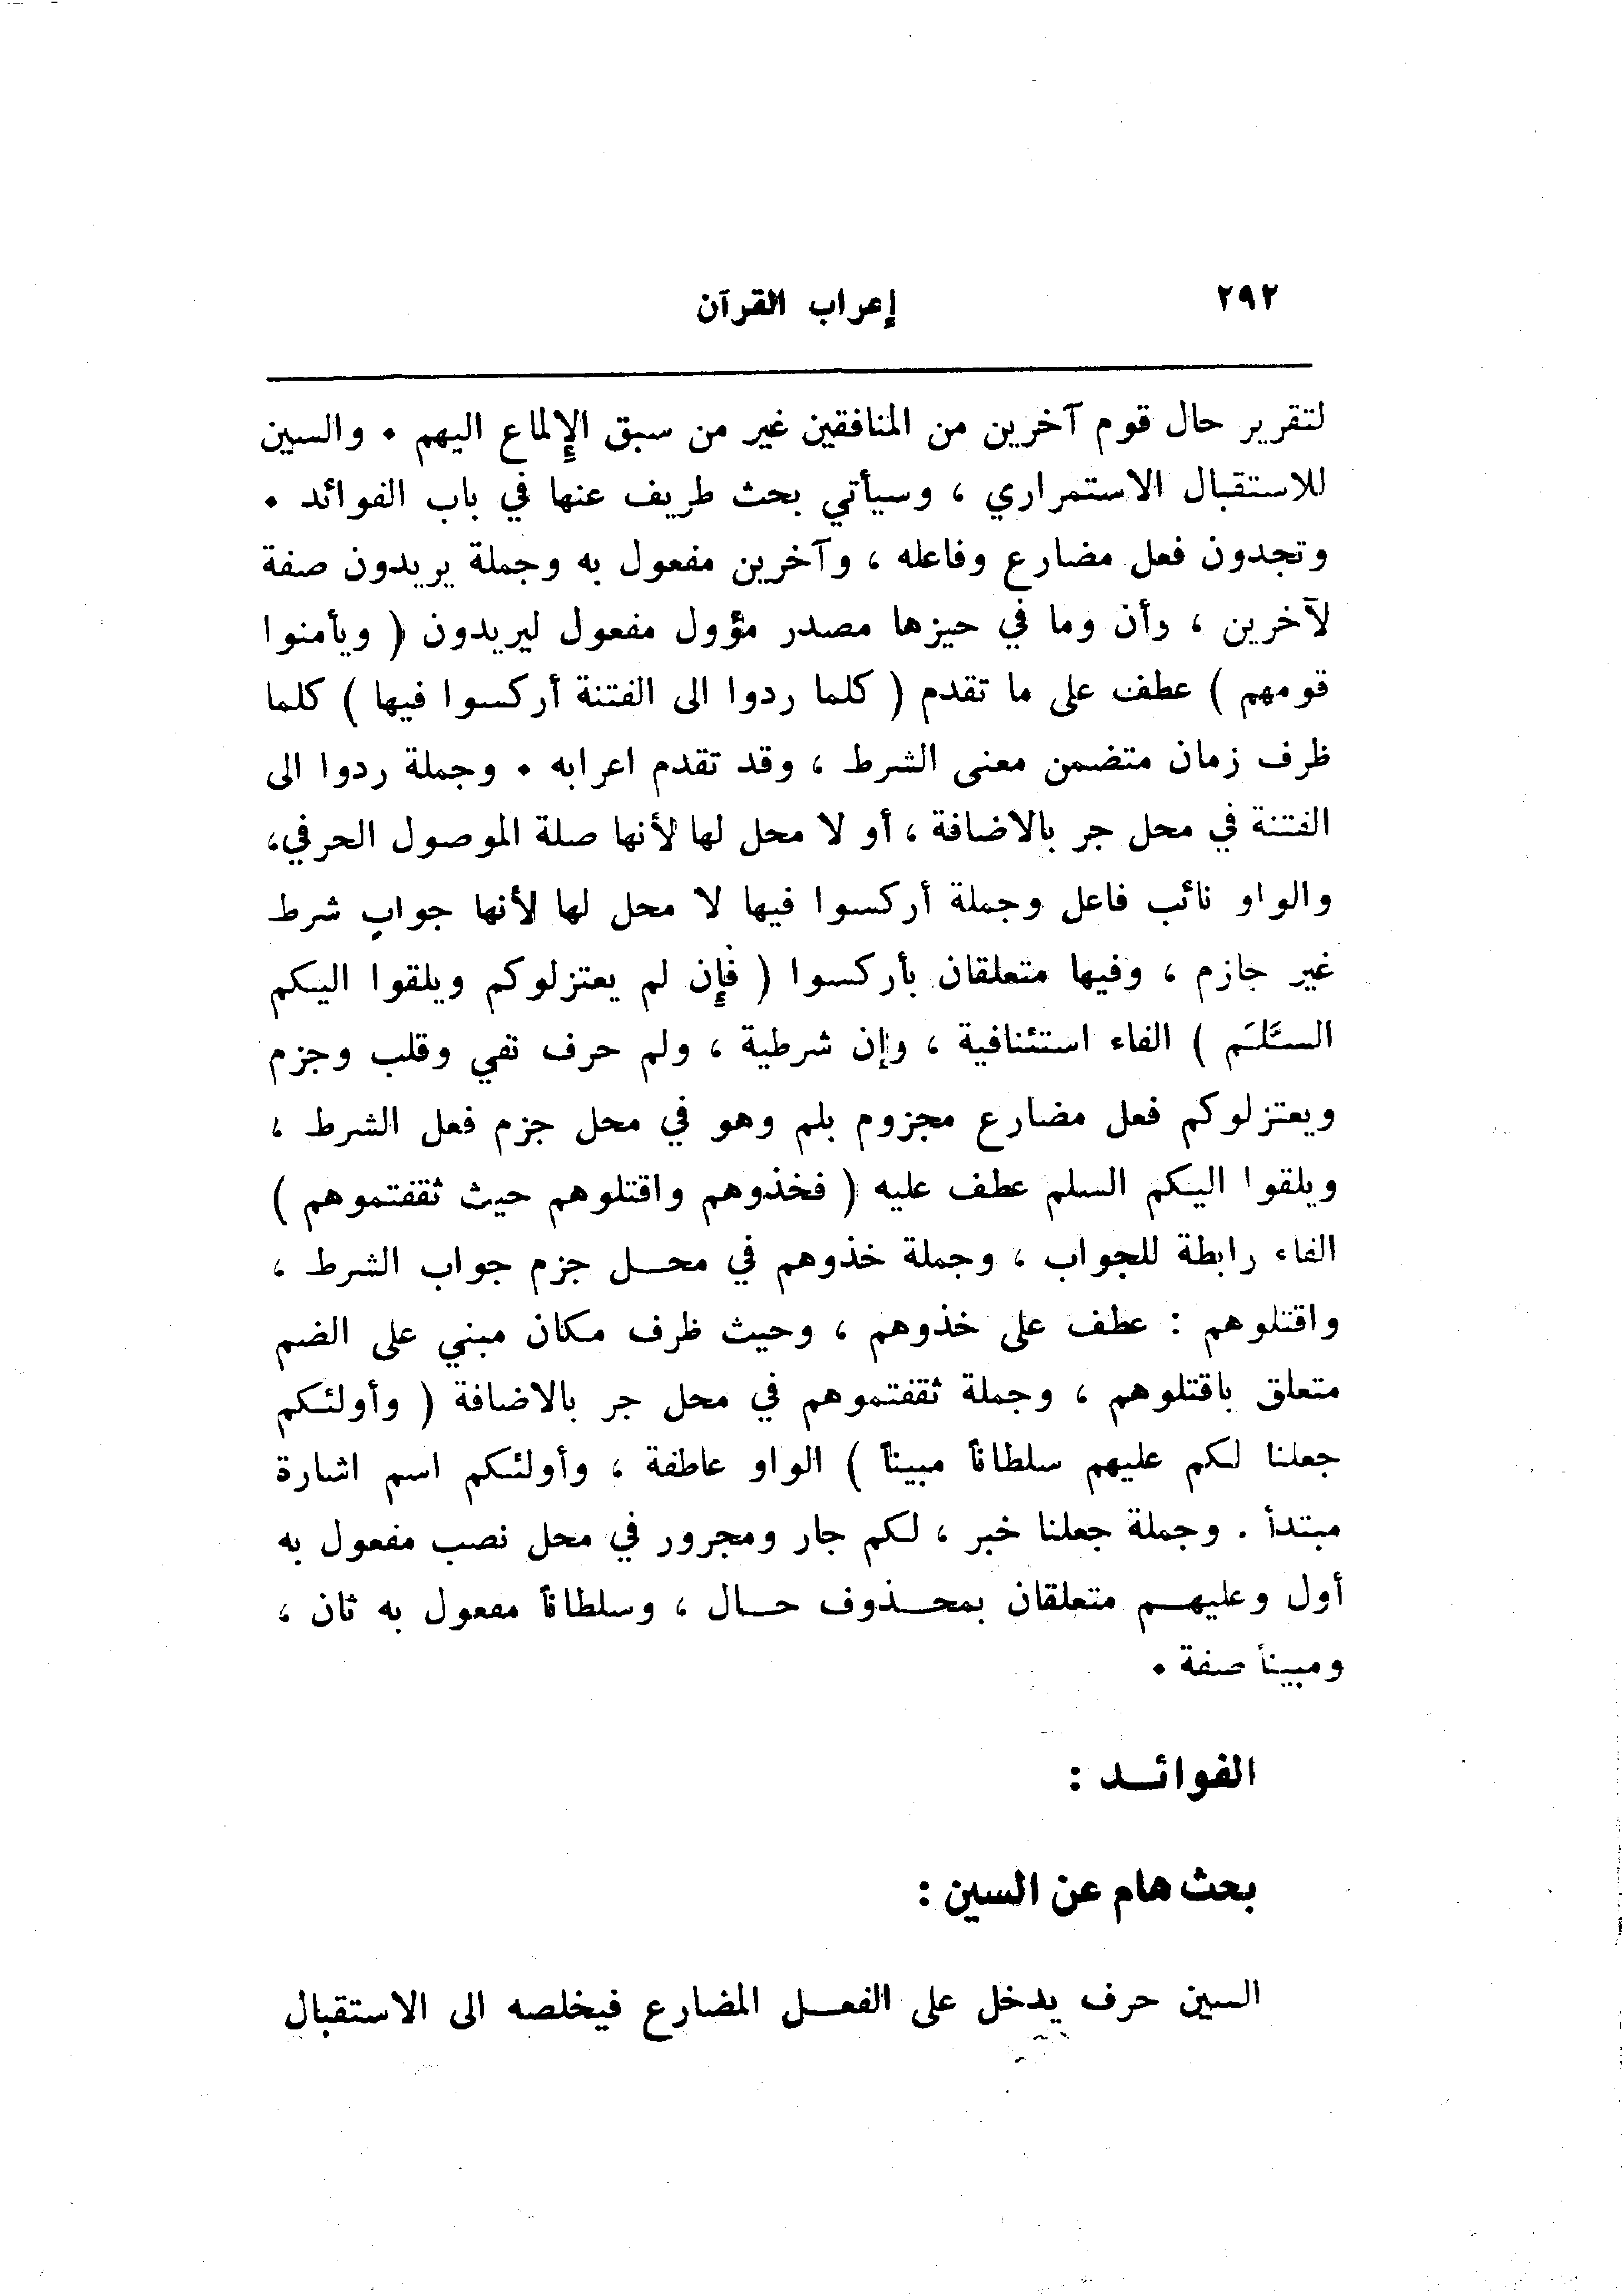 ٢٩٢
إعراب القرآن
لتقرير حال قوم آخرين من المنافقين غير من سبق الإلماع اليهم . والسين
للاستقبال الاستمراري ، وسيأتي بحث طريف عنها في باب الفوائد .
وتجدون فعل مضارع وفاعله ، وآخرين مفعول به وجملة يريدون صفة
لآخرين ، وأن وما في حيزها مصدر مؤول مفعول ليريدون ( ويأمنوا
قومهم ) عطف على ما تقدم ( كلما ردوا الى الفتنة أركسوا فيها ) كلما
ظرف زمان متضمن معنى الشرط ، وقد تقدم اعرابه . وجملة ردوا الى
الفتنة في محل جر بالاضافة ، أو لا محل لها لأنها صلة الموصول الحرفي،
والواو نائب فاعل وجملة أركسوا فيها لا محل لها لأنها جواب شرط
غير جازم ، وفيها متعلقان بأركسوا ( فإن لم يعتزلوكم ويلقوا اليكم
السَّلَم ) الفاء استئنافية ، وإن شرطية ، ولم حرف نفي وقلب وجزم
ويعتزلوكم فعل مضارع مجزوم بلم وهو في محل جزم فعل الشرط ،
ويلقوا اليكم السلم عطف عليه ( فخذوهم واقتلوهم حيث ثقفتموهم )
الفاء رابطة للجواب ، وجملة خذوهم في محل جزم جواب الشرط ،
واقتلوهم : عطف على خذوهم ، وحيث ظرف مكان مبني على الضم
متعلق باقتلوهم ، وجملة ثقفتموهم في محل جر بالاضافة ( وأولئكم
جعلنا لكم عليهم سلطاناً مبيناً ) الواو عاطفة ، وأولئكم اسم اشارة
مبتدأ . وجملة جعلنا خبر ، لكم جار ومجرور في محل نصب مفعول به
أول وعليهم متعلقان بمحذوف حال ، وسلطاناً مفعول به ثان ،
ومبيناً صفة .
الفوائد :
بحث هام عن السين :
السين حرف يدخل على الفعل المضارع فيخلصه الى الاستقبال